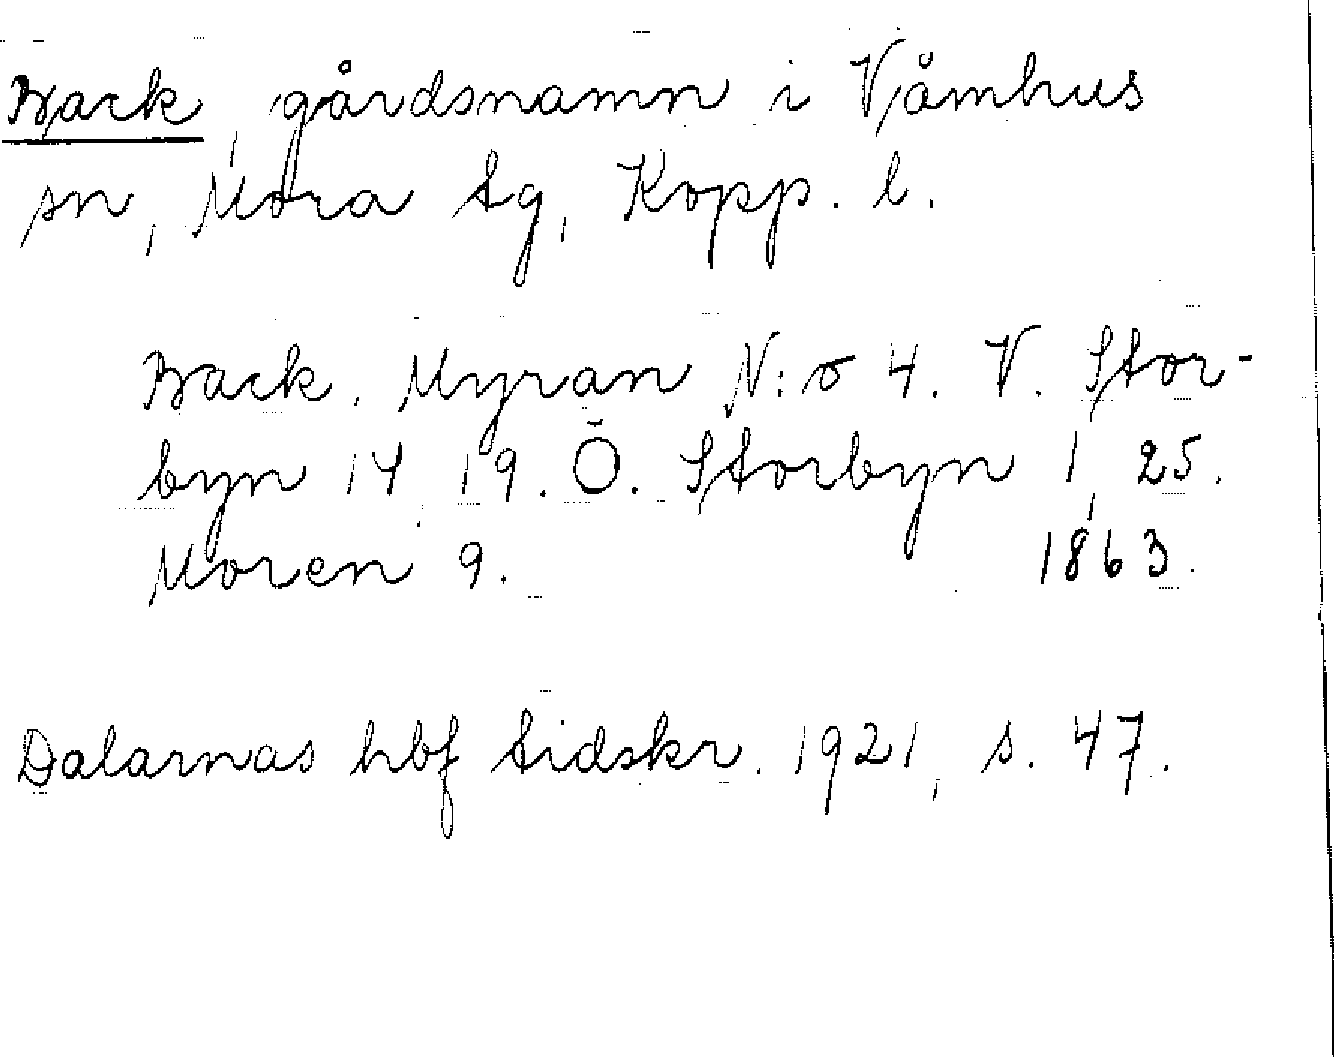 Back, gårdsnamn i Våmhus
sn, Mora tg, Kopp. l.
Back. Myran N:o 4. V. Stor-
byn 14, 19. Ö. Storbyn 1, 25.
Moren 9. 1863.
Dalarnas hbf tidskr. 1921, s. 47.